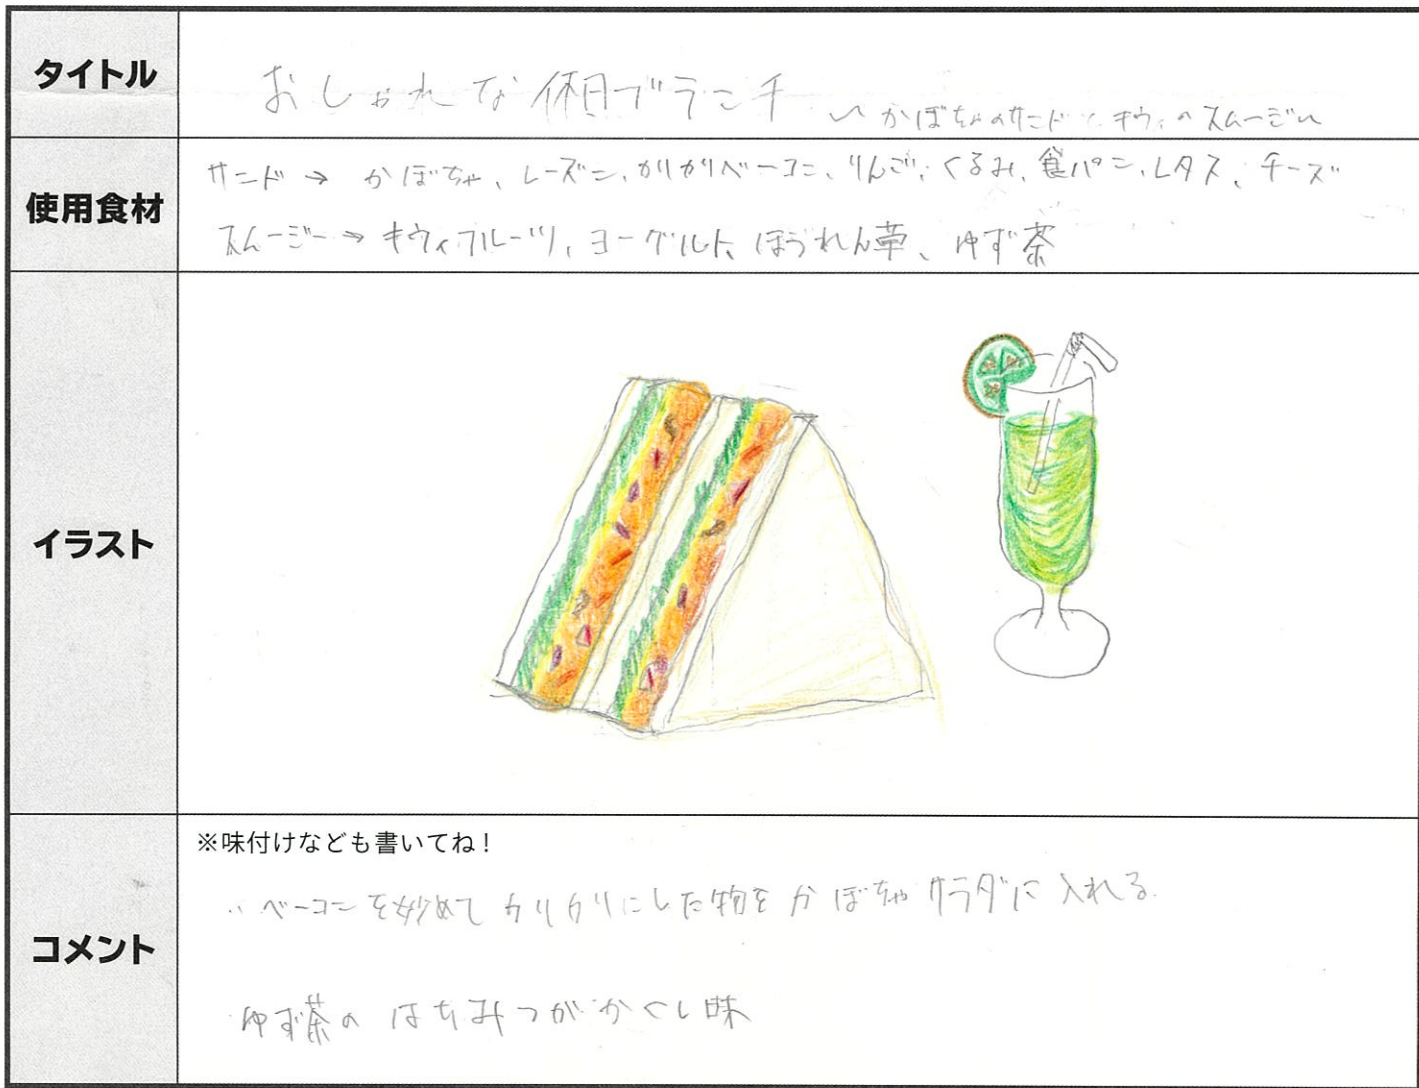 タイトル
おしゃれな休日ブランチ 〜かぼちゃのサンド・キウィのスムージー〜
使用食材
サンド → かぼちゃ、レーズン、カリカリベーコン、りんご、くるみ、食パン、レタス、チーズ
スムージー → キウィフルーツ、ヨーグルト、ほうれん草、ゆず茶
イラスト
コメント
※味付けなども書いてね!
・ベーコンを炒めてカリカリにした物をかぼちゃサラダに入れる.
ゆず茶のはちみつがかくし味